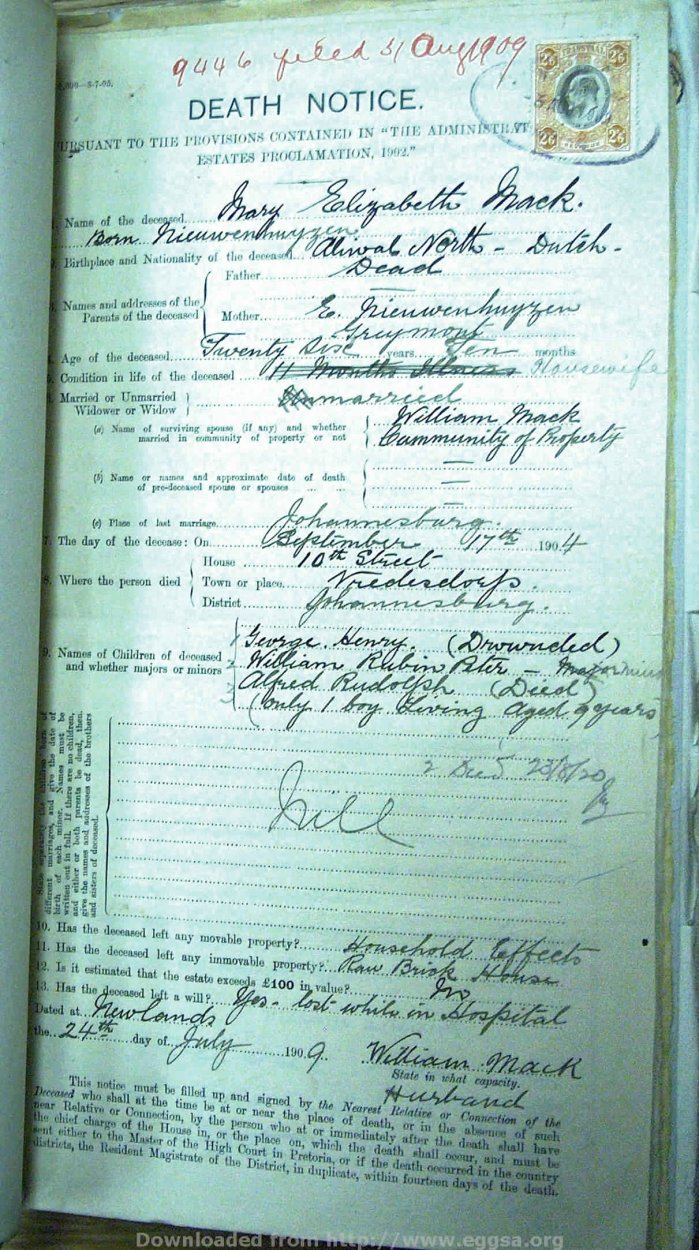 9446 filed 31 Aug 1909
8-7-05.
DEATH NOTICE.
PURSUANT TO THE PROVISIONS CONTAINED IN "THE ADMINISTRAT
ESTATES PROCLAMATION, 1902."
TRANSVAAL
2/6 2/6
2/6 2/6
Name of the deceased Mary Elizabeth Mack.
Born Nieuwenhuyzen
Birthplace and Nationality of the deceased Aliwal North - Dutch -
Father Dead
Names and addresses of the Parents of the deceased
Mother E. Nieuwenhuyzen
Greymont
Age of the deceased Twenty Sise years Ten months
Condition in life of the deceased 11 Months Illness Housewife
Married or Unmarried Unmarried
Widower or Widow
(a) Name of surviving spouse (if any) and whether married in community of property or not
William Mack
Cummunity of Property
(b) Name or names and approximate date of death of pre-deceased spouse or spouses
(c) Place of last marriage Johannesburg.
7. The day of the decease: On September 17th 1904
8. Where the person died
House 10th Street
Town or place Vredesdorp.
District Johannesburg.
9. Names of Children of deceased and whether majors or minors
1 George Henry (Drownded)
2 William Rubin Peter - Major
3 Alfred Rudolph (Died)
(only 1 boy Living Aged 9 years)
different marriages, and give the date of
birth of each minor. Names must be
written out in full. If there are no children,
and either or both parents be dead, then
give the names and addresses of the brothers
and sisters of deceased.
23/8/20
10. Has the deceased left any movable property? Household Effects
11. Has the deceased left any immovable property? Raw Brick House
12. Is it estimated that the estate exceeds £100 in value? No
13. Has the deceased left a will? Yes - lost while in Hospital
Dated at Newlands
the 24th day of July 1909.
William Mack
State in what capacity.
Hurband
This notice must be filled up and signed by the Nearest Relative or Connection of the
Deceased who shall at the time be at or near the place of death, or in the absence of such
near Relative or Connection, by the person who at or immediately after the death shall have
the chief charge of the House in, or the place on, which the death shall occur, and must be
sent either to the Master of the High Court in Pretoria, or if the death occurred in the country
districts, the Resident Magistrate of the District, in duplicate, within fourteen days of the death.
Downloaded from http://www.eggsa.org